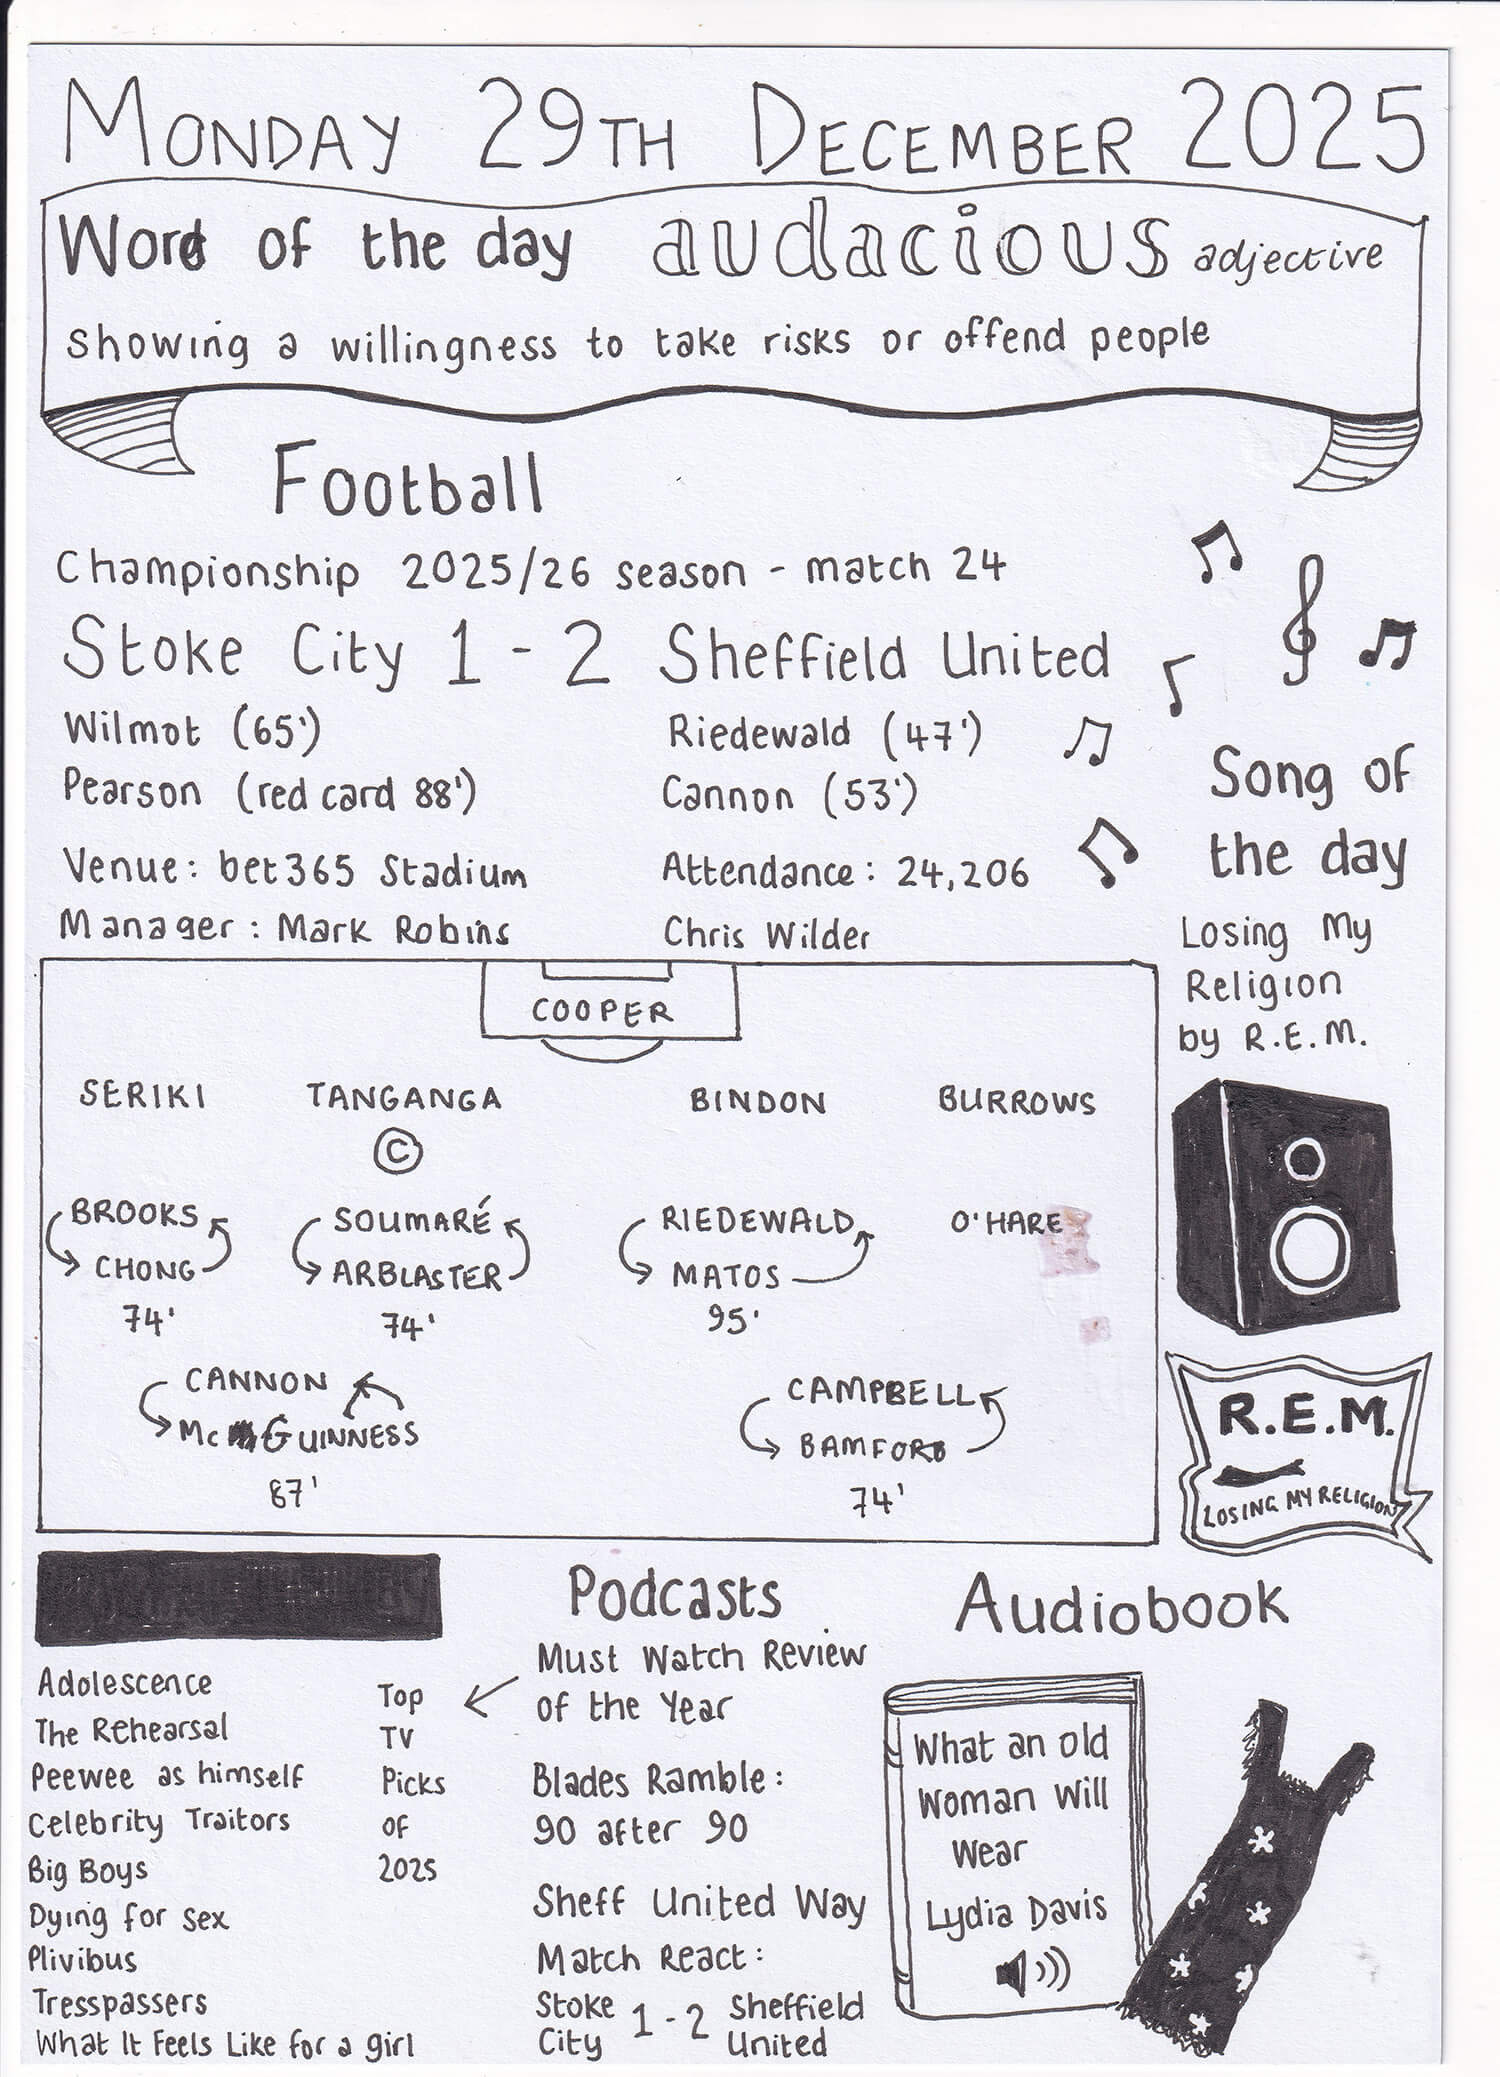 MONDAY 29TH DECEMBER 2025
Word of the day audacious adjective
showing a willingness to take risks or offend people
Football
Championship 2025/26 season - match 24
Stoke City 1 - 2 Sheffield United
Wilmot (65') Riedewald (47')
Pearson (red card 88') Cannon (53')
Venue: bet365 Stadium Attendance: 24,206
Manager: Mark Robins Chris Wilder
Song of
the day
Losing My
Religion
by R.E.M.
COOPER
SERIKI TANGANGA BINDON BURROWS
©
BROOKS SOUMARÉ RIEDEWALD O'HARE
CHONG ARBLASTER MATOS
74' 74' 95'
CANNON CAMPBELL
McGUINNESS BAMFORD
87' 74'
R.E.M.
LOSING MY RELIGION
Adolescence
The Rehearsal
Peewee as himself
Celebrity Traitors
Big Boys
Dying for sex
Plivibus
Tresspassers
What It Feels Like for a girl
Top
TV
Picks
of
2025
Podcasts
Must Watch Review
of the Year
Blades Ramble:
90 after 90
Sheff United Way
Match React:
Stoke City 1 - 2 Sheffield United
Audiobook
What an old
Woman Will
Wear
Lydia Davis